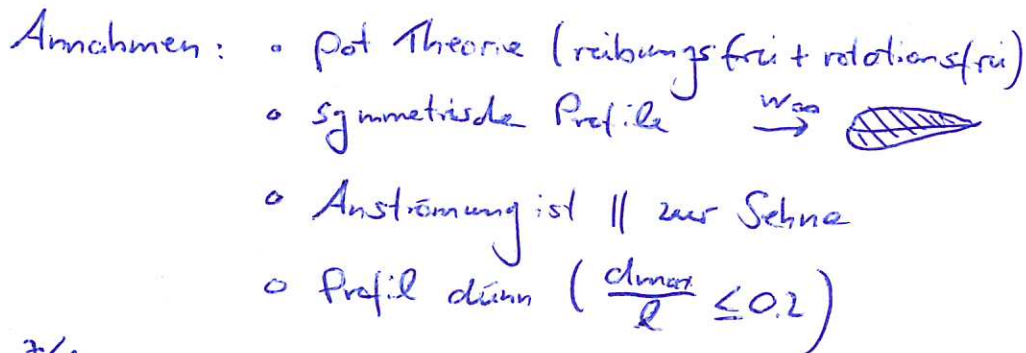 Annahmen: • pot Theorie (reibungsfrei + rotationsfrei)
• symmetrische Profile w∞ →
• Anströmung ist || zur Sehne
• Profil dünn ( dmax/l ≤ 0.2 )